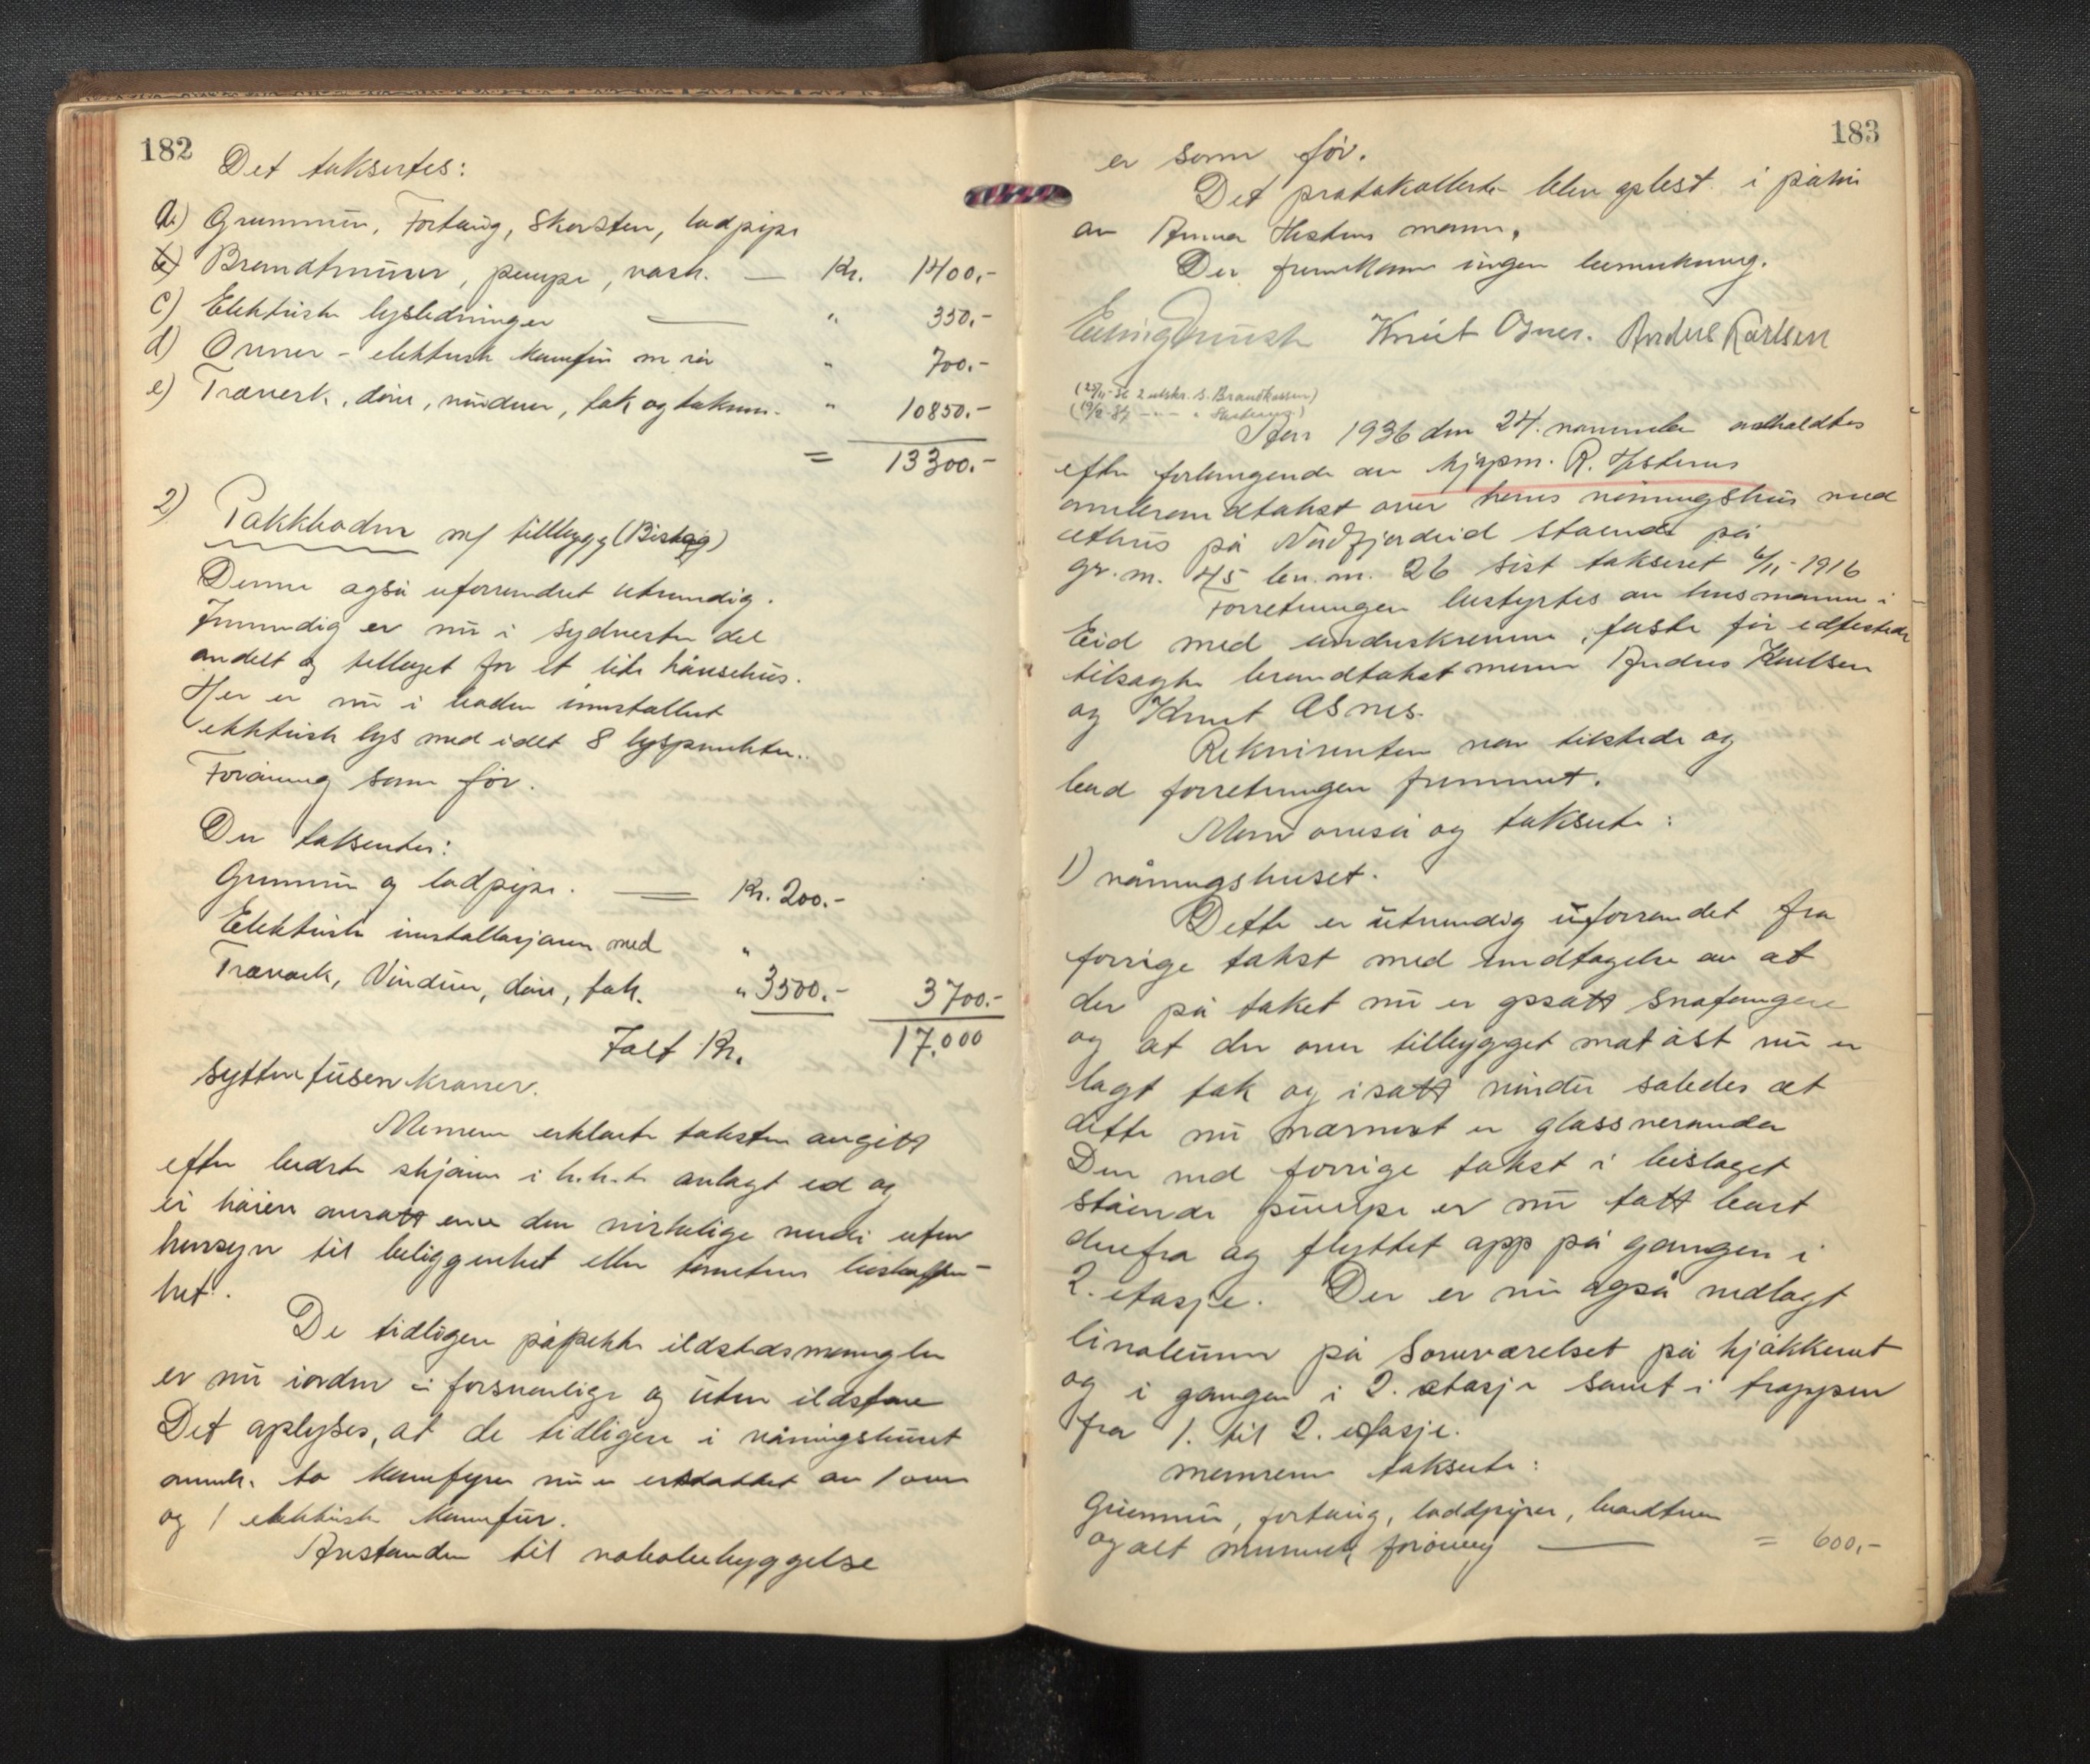 182
Det taksertes:
a) Grunnmur, Fortaug, Skorsten, ladpipe
b) Brandtmurer, pumpe, vask. — Kr. 1400,-
c) Elektriske lysledninger — " 350,-
d) Ovner - elektrisk kamfür m rör " 700,-
e) Træverk, döre, vinduer, tak og takrenn. " 10850,-
= 13300,-
2) Pakkboden m/ tillbygg (Bislag)
Denne også uforrandret utvendig.
Innvendig er nu i sydvestre del
avdelt og tillaget for et lite hönsehus.
Her er nu i boden innstallert
elektrisk lys med i alt 8 lyspunkter.
Foröving som för.
Der taksertes:
Grunmur og ladpipe. — Kr. 200.-
Elektrisk innstallasjonen med "
Trævark, Vinduer, döre, tak. " 3500.- 3700.-
Ialt Kr. 17.000
sytten tusen kroner.
Mennene erklærte taksten avgitt
efter bedste skjönn i h.h.t. avlagt ed og
ei höiere ansatt enn den virkelige verdi uten
hensyn til beliggenhet eller tomtens beskaffen-
het.
De tidligere påpekte ildstedsmangler
er nu iorden — forsvarlige og uten ildsfare
Det oplyses, at de tidligere i våningshuset
anmeld. to kamfyrer nu er erstattet av 1 ovn
og 1 elektrisk kamfür.
Avstanden til nabobebyggelse
183
er som för.
Det protokollerte blev oplest i påhör
av Anna Hestenes mann.
Der fremkom ingen bemerkning.
Knut Osnes. Anders Karlsen
(25/11-36 2 utskr. s. Brandkassen)
(19/2-37 — " —)
Aar 1936 den 24. november avholdtes
efter forlangende av kjøpm. R. Hestenes
ombrandtakst over hans våningshus med
uthus på Nordfjordeid stående på
gr. nr. 45 br. nr. 26 sist takseret 6/11-1916
Forretningen bestyrtes av lensmannen i
Eid med underskrevne, faste för edfestede
tilsagte brandtakstmenn Anders Karlsen
og Knut Osnes.
Rekvirenten var tilstede og
bad forretningen fremmet.
Man omså og takserte:
1) våningshuset.
Dette er utvendig uforrandet fra
forrige takst med undtagelse av at
der på taket nu er opsatt snøfangere
og at der over tillbygget mot öst nu er
lagt tak og isatt vinduer saledes at
dette nu nærmest er glassveranda
Den ved forrige takst i bislaget
stående pumpe er nu tatt bort
derfra og flyttet opp på gangen i
2. etasje. Der er nu også nedlagt
linoleum på Soveværelset på kjökkenet
og i gangen i 2. etasje samt i trappen
fra 1. til 2. etasje.
mennene takserte:
Grunnmur, fortaug, laddpiper, brandtmur
og alt murverk foröving — = 600,-